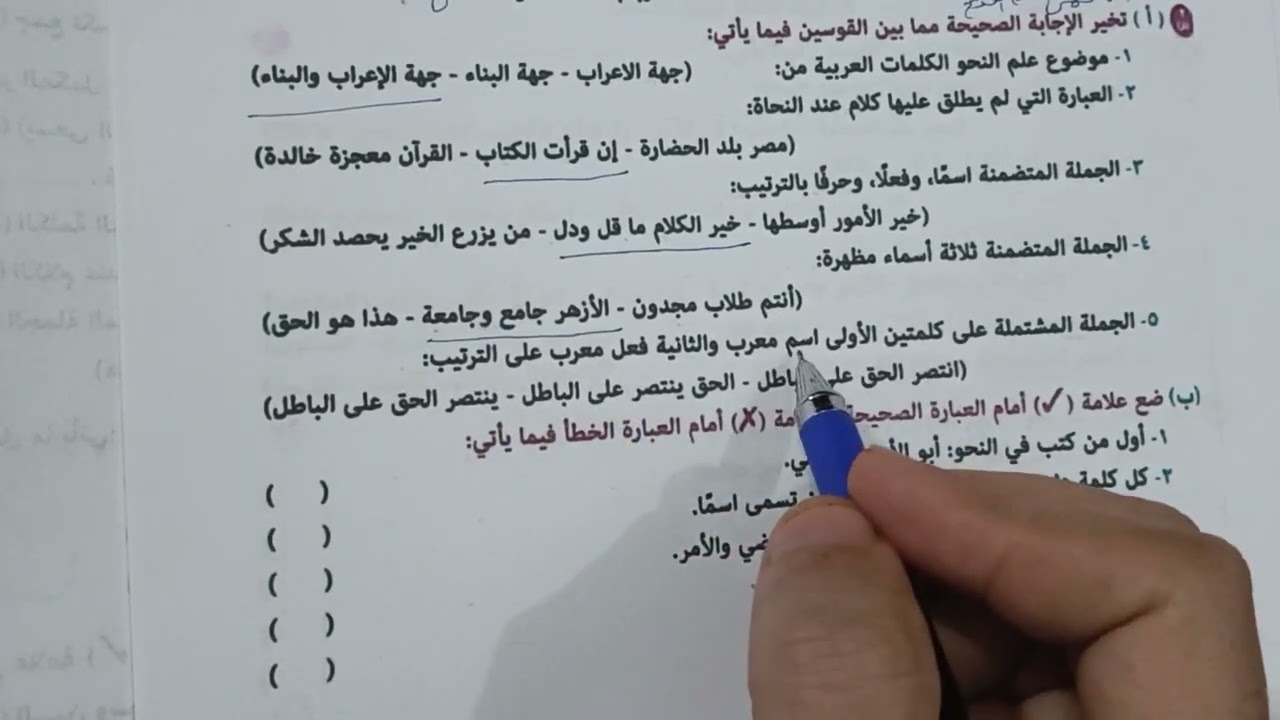 (أ) تخير الإجابة الصحيحة مما بين القوسين فيما يأتي:
١- موضوع علم النحو الكلمات العربية من: (جهة الاعراب - جهة البناء - جهة الإعراب والبناء)
٢- العبارة التي لم يطلق عليها كلام عند النحاة:
(مصر بلد الحضارة - إن قرأت الكتاب - القرآن معجزة خالدة)
٣- الجملة المتضمنة اسمًا، وفعلًا، وحرفًا بالترتيب:
(خير الأمور أوسطها - خير الكلام ما قل ودل - من يزرع الخير يحصد الشكر)
٤- الجملة المتضمنة ثلاثة أسماء مظهرة:
(أنتم طلاب مجدون - الأزهر جامع وجامعة - هذا هو الحق)
٥- الجملة المشتملة على كلمتين الأولى اسم معرب والثانية فعل معرب على الترتيب:
(انتصر الحق على الباطل - الحق ينتصر على الباطل - ينتصر الحق على الباطل)
(ب) ضع علامة (✓) أمام العبارة الصحيحة (✗) أمام العبارة الخطأ فيما يأتي:
١- أول من كتب في النحو: أبو ( )
٢- كل كلمة تسمى اسمًا. ( )
والأمر. ( )
( )
( )